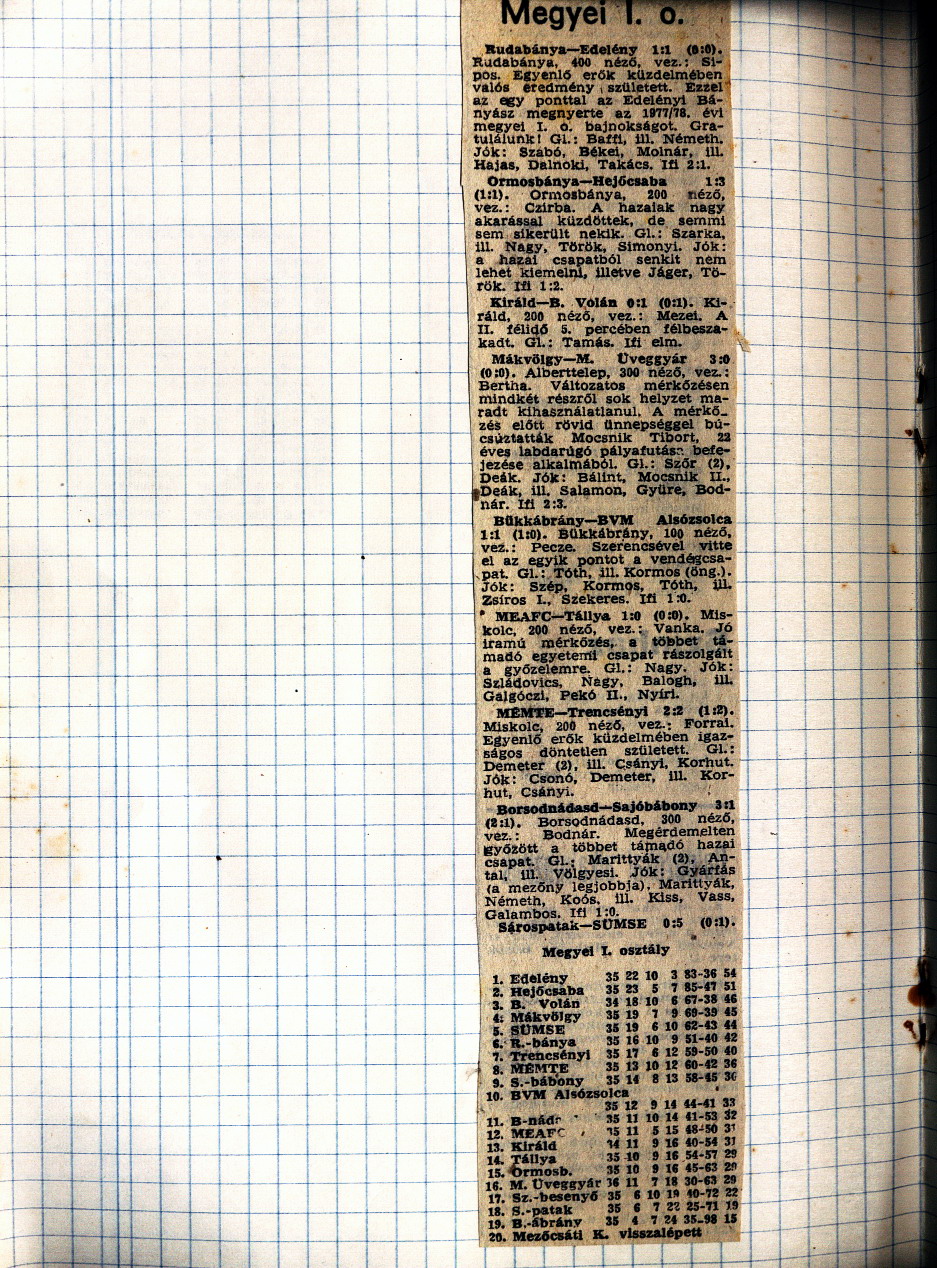 Megyei I. o.
Rudabánya—Edelény 1:1 (0:0).
Rudabánya, 400 néző, vez.: Si-
pos. Egyenlő erők küzdelmében
valós eredmény született. Ezzel
az egy ponttal az Edelényi Bá-
nyász megnyerte az 1977/78. évi
megyei I. o. bajnokságot. Gra-
tulálunk! Gl.: Baffi, ill. Németh.
Jók: Szabó, Békei, Molnár, ill.
Hajas, Dalnoki, Takács. Ifi 2:1.
Ormosbánya—Hejőcsaba 1:3
(1:1). Ormosbánya, 200 néző,
vez.: Czirba. A hazaiak nagy
akarással küzdöttek, de semmi
sem sikerült nekik. Gl.: Szarka,
ill. Nagy, Török, Simonyi. Jók:
a hazai csapatból senkit nem
lehet kiemelni, illetve Jáger, Tö-
rök. Ifi 1:2.
Királd—B. Volán 0:1 (0:1). Ki-
ráld, 200 néző, vez.: Mezei. A
II. félidő 5. percében félbesza-
kadt. Gl.: Tamás. Ifi elm.
Mákvölgy—M. Üveggyár 3:0
(0:0). Alberttelep, 300 néző, vez.:
Bertha. Változatos mérkőzésen
mindkét részről sok helyzet ma-
radt kihasználatlanul. A mérkő-
zés előtt rövid ünnepséggel bú-
csúztatták Mocsnik Tibort, 22
éves labdarúgó pályafutása befe-
jezése alkalmából. Gl.: Szőr (2),
Deák. Jók: Bálint, Mocsnik II.,
Deák, ill. Salamon, Gyüre, Bod-
nár. Ifi 2:3.
Bükkábrány—BVM Alsózsolca
1:1 (1:0). Bükkábrány, 100 néző,
vez.: Pecze. Szerencsével vitte
el az egyik pontot a vendégcsa-
pat. Gl.: Tóth, ill. Kormos (öng.).
Jók: Szép, Kormos, Tóth, ill.
Zsíros I., Szekeres. Ifi 1:0.
MEAFC—Tállya 1:0 (0:0). Mis-
kolc, 200 néző, vez.: Vanka. Jó
iramú mérkőzés, a többet tá-
madó egyetemi csapat rászolgált
a győzelemre. Gl.: Nagy. Jók:
Szládovics, Nagy, Balogh, ill.
Galgóczi, Pekó II., Nyíri.
MÉMTE—Trencsényi 2:2 (1:2).
Miskolc, 200 néző, vez.: Forrai.
Egyenlő erők küzdelmében igaz-
ságos döntetlen született. Gl.:
Demeter (2), ill. Csányi, Korhut.
Jók: Csonó, Demeter, ill. Kor-
hut, Csányi.
Borsodnádasd—Sajóbábony 3:1
(2:1). Borsodnádasd, 300 néző,
vez.: Bodnár. Megérdemelten
győzött a többet támadó hazai
csapat. Gl.: Marittyák (2), An-
tal, ill. Völgyesi. Jók: Gyárfás
(a mezőny legjobbja), Marittyák,
Németh, Koós, ill. Kiss, Vass,
Galambos. Ifi 1:0.
Sárospatak—SÜMSE 0:5 (0:1).
Megyei I. osztály
1. Edelény 35 22 10 3 83-36 54
2. Hejőcsaba 35 23 5 7 85-47 51
3. B. Volán 34 18 10 6 67-38 46
4. Mákvölgy 35 19 7 9 69-39 45
5. SÜMSE 35 19 6 10 62-43 44
6. R.-bánya 35 16 10 9 51-40 42
7. Trencsényi 35 17 6 12 59-50 40
8. MÉMTE 35 13 10 12 60-42 36
9. S.-bábony 35 14 8 13 58-45 36
10. BVM Alsózsolca
35 12 9 14 44-41 33
11. B-nád. 35 11 10 14 41-53 32
12. MEAFC 35 11 5 15 48-50 31
13. Királd 34 11 9 16 40-54 31
14. Tállya 35 10 9 16 54-57 29
15. Ormosb. 35 10 9 16 45-63 29
16. M. Üveggyár 36 11 7 18 30-63 29
17. Sz.-besenyő 35 6 10 19 40-72 22
18. S.-patak 35 6 7 22 25-71 19
19. B.-ábrány 35 4 7 24 35-98 15
20. Mezőcsáti K. visszalépett